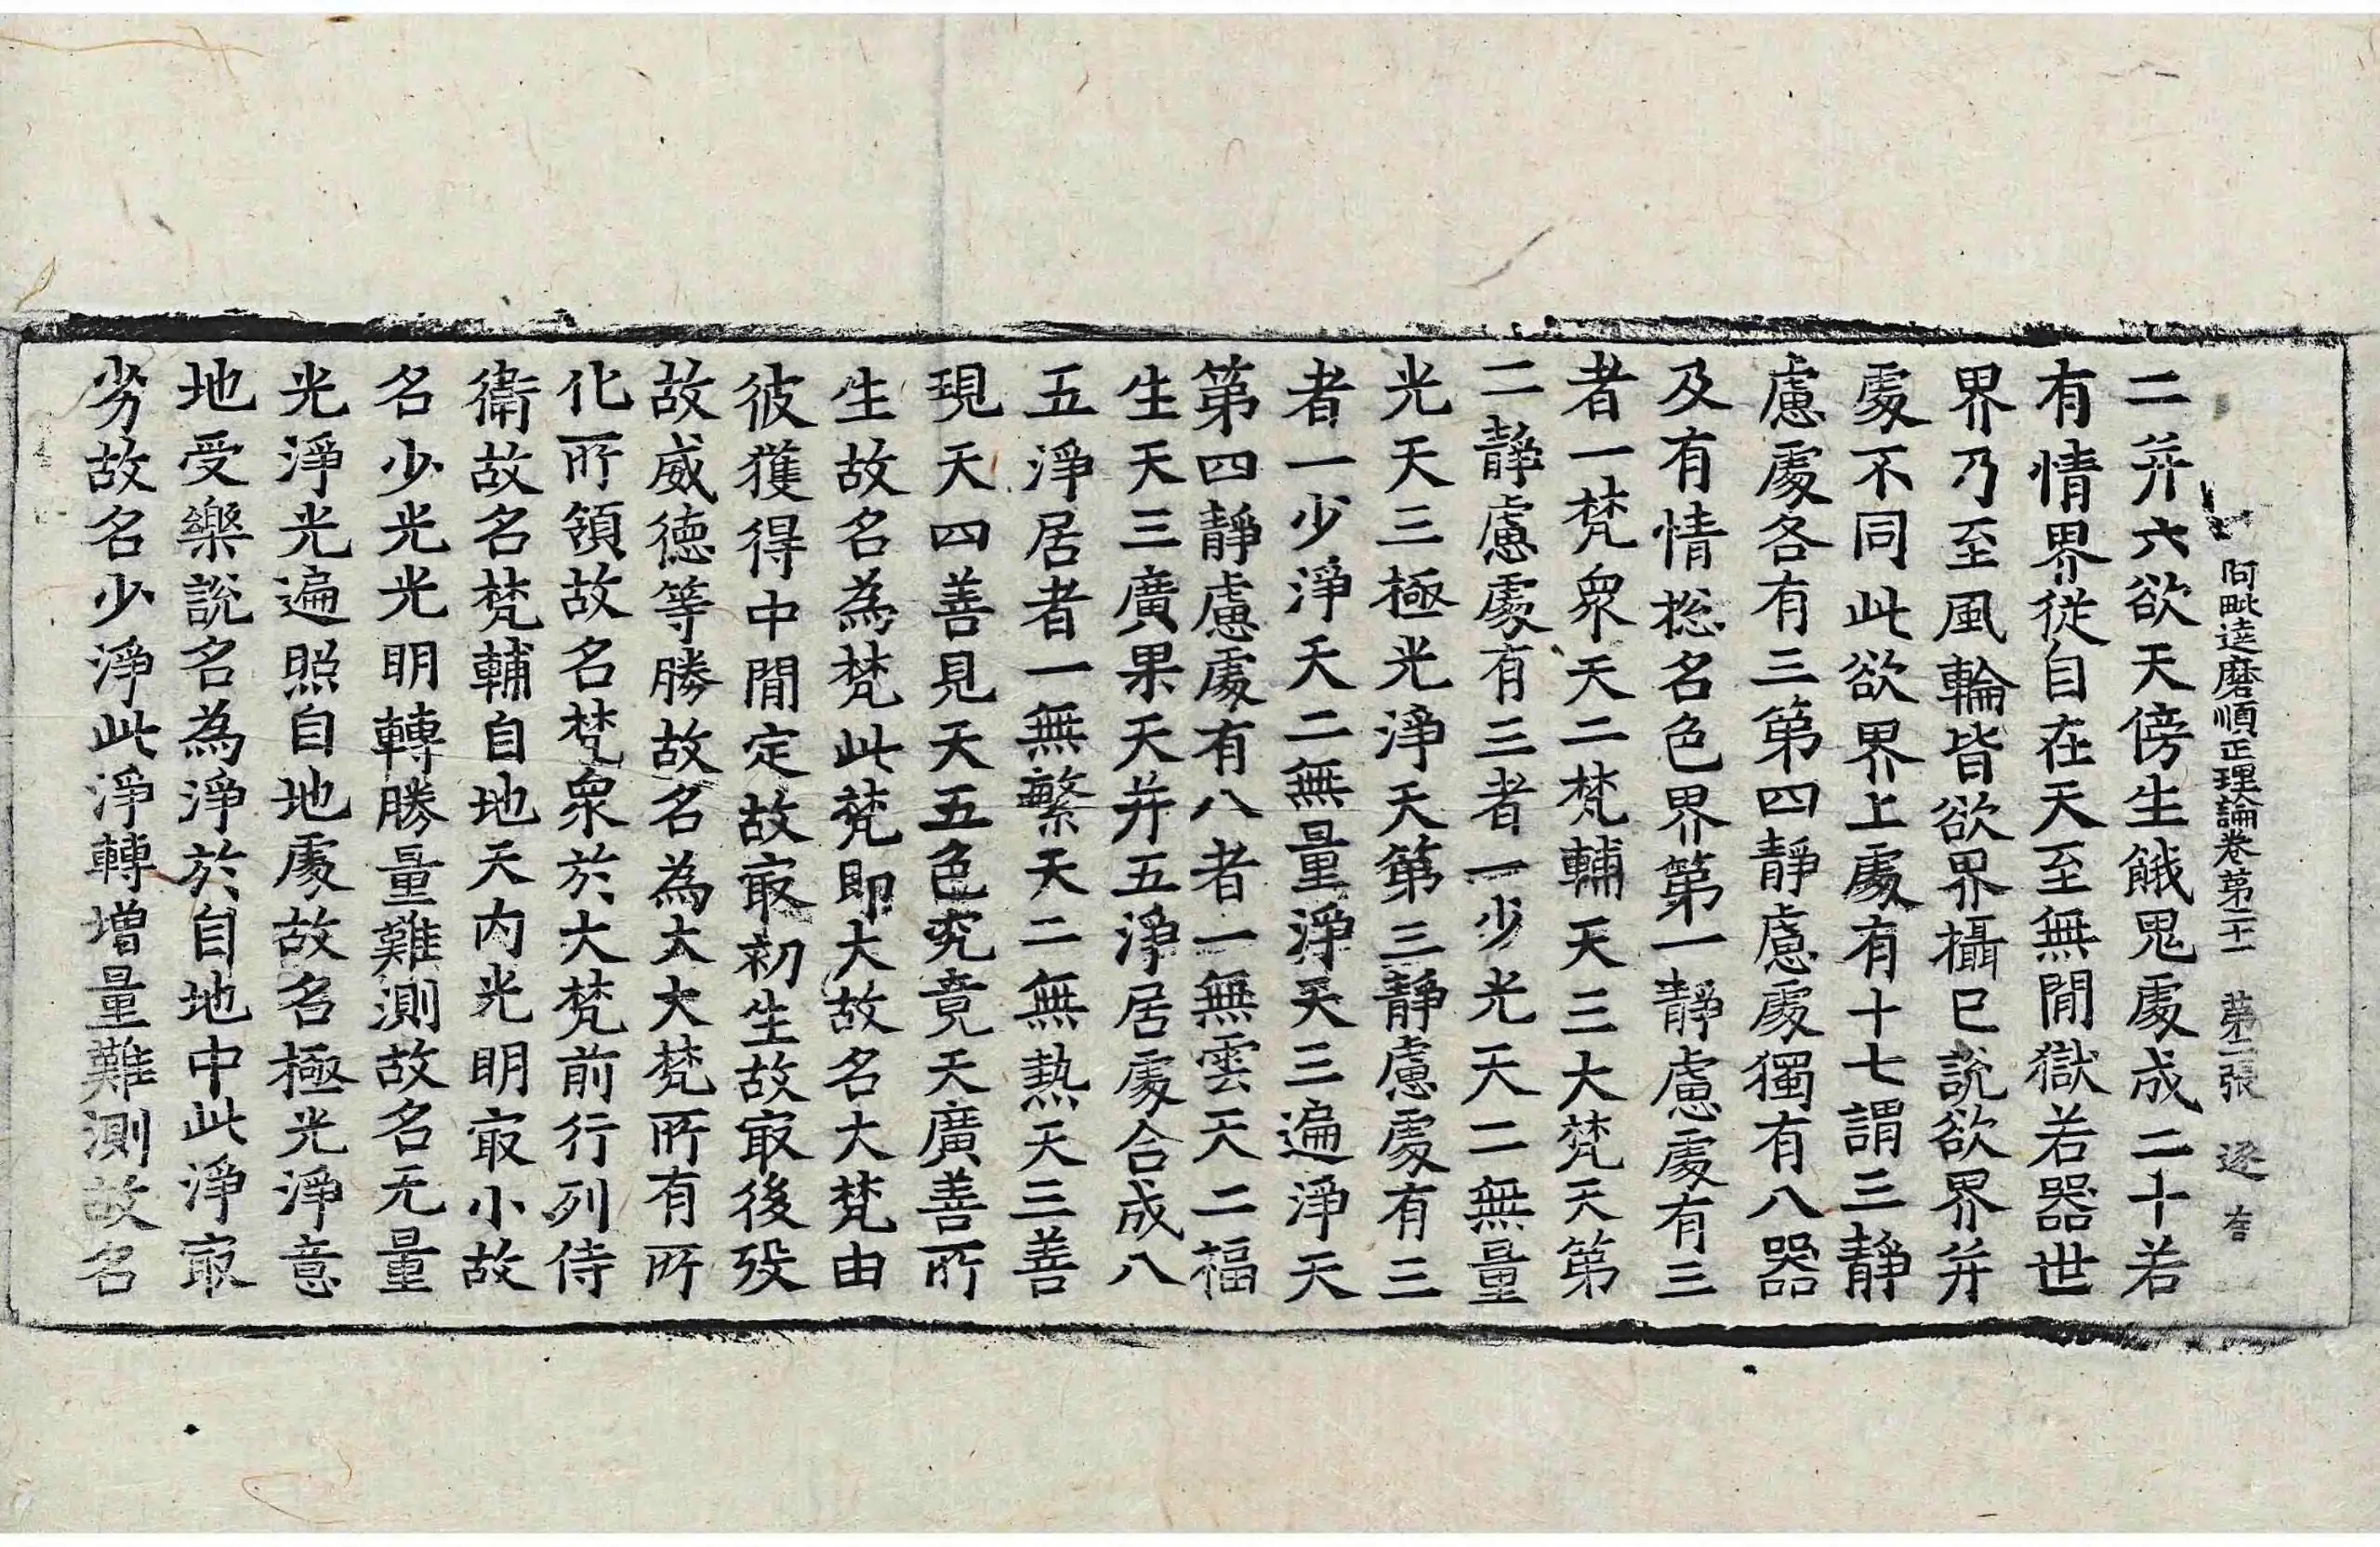 阿毗達磨順正理論卷第二十一　第二張　逐　吉
二并六欲天傍生餓鬼處成二十若
有情界從自在天至無閒獄若器世
界乃至風輪皆欲界攝已說欲界并
處不同此欲界上處有十七謂三靜
慮處各有三第四靜慮處獨有八器
及有情捴名色界第一靜慮處有三
者一梵衆天二梵輔天三大梵天第
二靜慮處有三者一少光天二無量
光天三極光淨天第三靜慮處有三
者一少淨天二無量淨天三遍淨天
第四靜慮處有八者一無雲天二福
生天三廣果天并五淨居處合成八
五淨居者一無繁天二無熱天三善
現天四善見天五色究竟天廣善所
生故名為梵此梵即大故名大梵由
彼獲得中閒定故㝡初生故㝡後歿
故威德等勝故名為大大梵所有所
化所領故名梵衆於大梵前行列侍
衞故名梵輔自地天内光明㝡小故
名少光光明轉勝量難測故名无量
光淨光遍照自地處故名極光淨意
地受樂說名為淨於自地中此淨㝡
劣故名少淨此淨轉增量難測故名